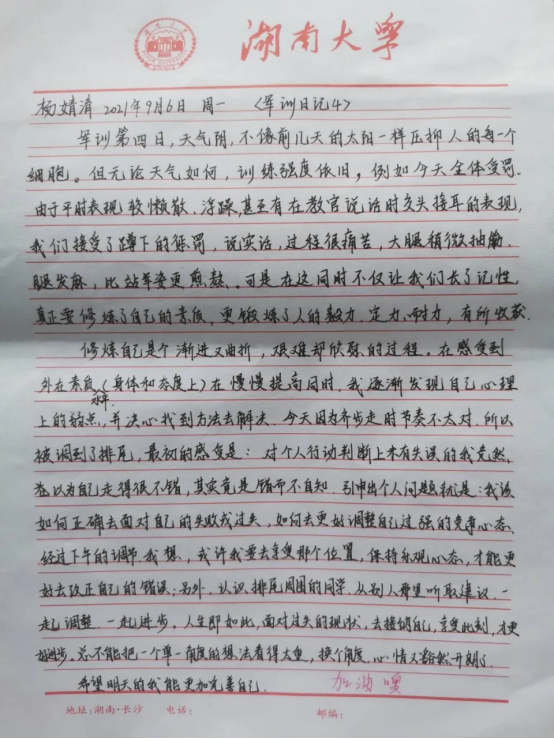 湖南大学
杨婧涛 2021年9月6日 周一 《军训日记4》
军训第四日，天气阴，不像前几天的太阳一样压抑人的每一个
细胞。但无论天气如何，训练强度依旧，例如今天全体受罚。
由于平时表现较懒散、浮躁，甚至有在教官说话时交头接耳的表现，
我们接受了蹲下的惩罚，说实话，过程很痛苦，大腿稍微抽动、
腿发麻，比站军姿更煎熬。可是在这同时不仅让我们长了记性
真正要修炼了自己的素质，更锻炼了人的毅力、定力、耐力，有所收获。
修炼自己是个渐进又曲折，艰难却欣慰的过程。在感受到
外在素质（身体和态度上）在慢慢提高同时，我逐渐发现自己心理
素养
上的弱点，并决心找到方法去解决。今天因为齐步走时节奏不太对，所以
被调到了排尾，最初的感受是：对个人行动判断上未有失误的我竟然、
总以为自己走得很不错，其实竟是错而不自知。引申出个人问题就是：我该
如何正确去面对自己的失败或过失，如何去更好调整自己过强的竞争心态。
经过下午的调节，我想，或许我要去享受那个位置，保持乐观心态，才能更
好去改正自己的错误；另外，认识排尾周围的同学，从别人那里听取建议，一
起调整，一起进步。人生即如此，面对过失的现状，去接纳自己，享受此刻，才更
好进步。总不能把一个单一角度的想法看得太重，换个角度，心情又豁然开朗了。
希望明天的我能更加完善自己。 加油噢
地址：湖南·长沙 电话： 邮编：